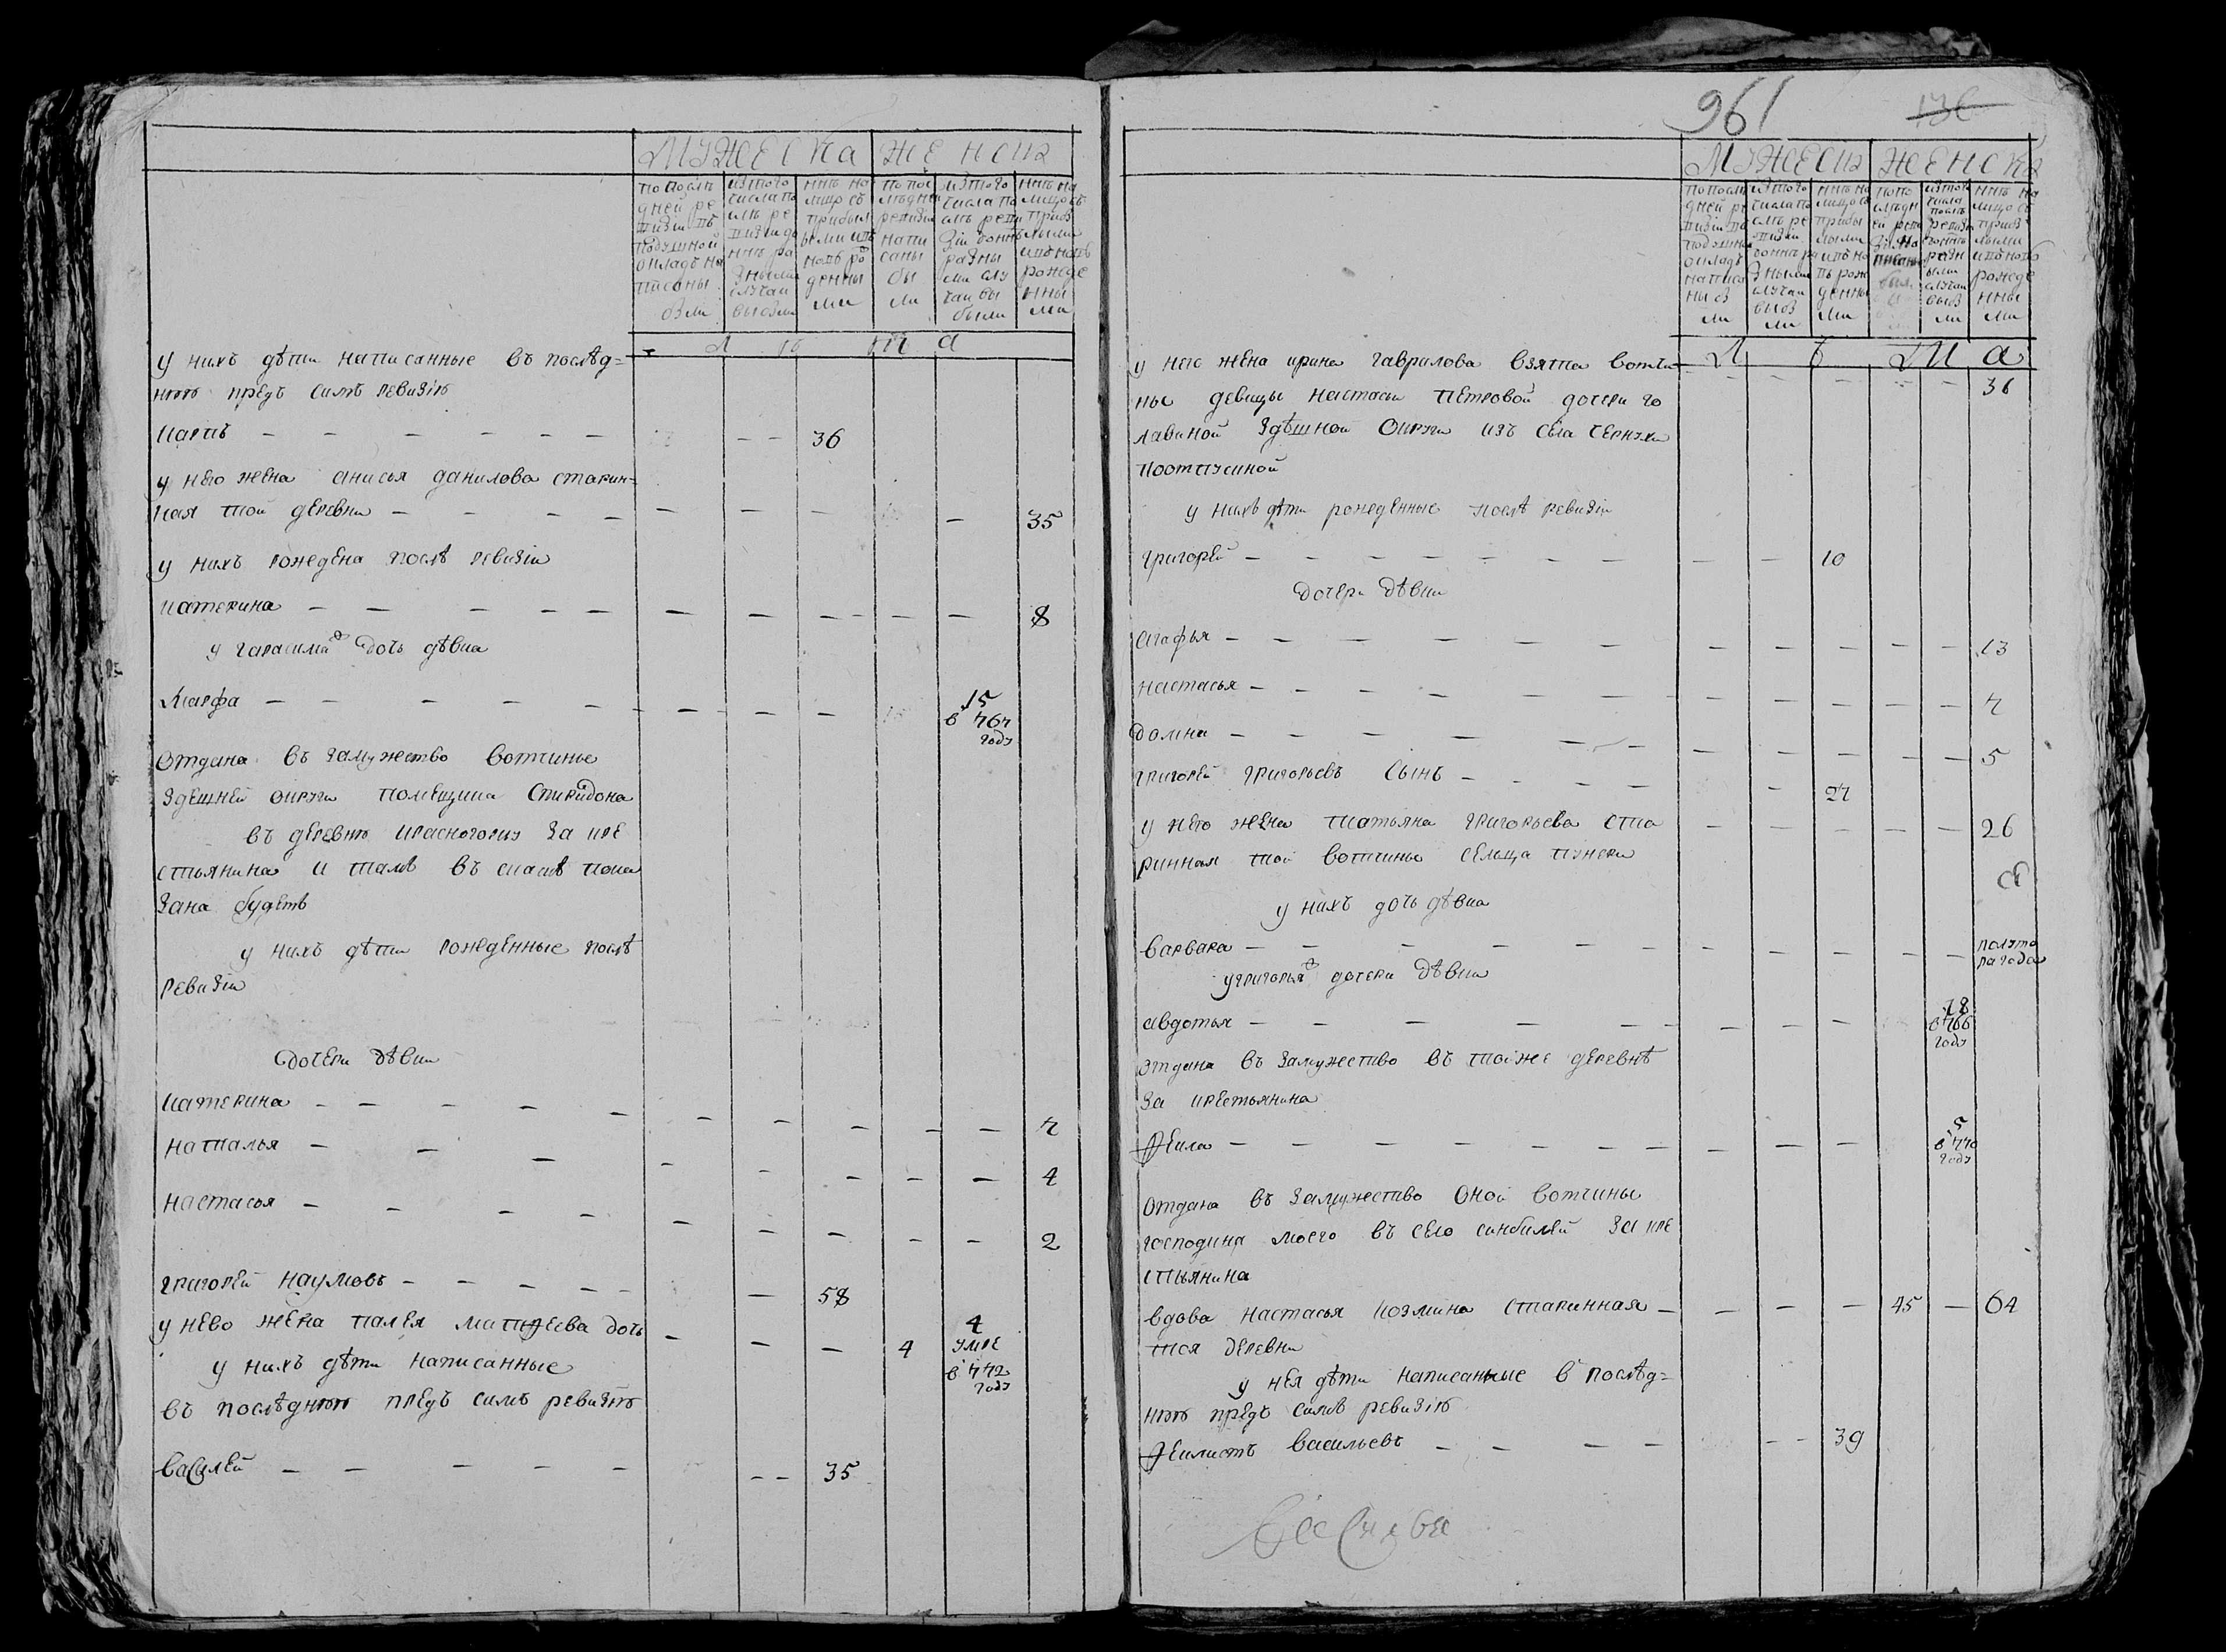 мужеска женска
по после дней ре визіи въ подушной окладъ на писаны были
изъ того числа по слѣ ре визіи до ннѣ ра зными случаи выбыли
ннѣ на лицо съ прибыл ыми и въ новь ро жденны ми
по пос лѣдней ревизіи напи саны бы ли
изъ того числа по слѣ реви зіи доннѣ разны ми слу чаи вы были
ннѣ на лицо съ приб ылыми и въ новь рожде нны ми
л ѣ т а
у нихъ дѣти написанные въ послѣд=
нюю предъ симъ ревизію
Карпъ — — — — — — — — 36
у него жена анисья данилова старин=
ная той деревни — — — — — — — — 35
у нихъ рождена послѣ ревизіи
катерина — — — — — — — — — — 8
у гарасима дочь дѣвка
Марфа — — — — — — — — 15
в 767
году
отдана въ замужество вотчины
здешней округи помещика Спиридона
въ деревню красногорку за кре
стьянина и тамъ въ скаскѣ пока
зана будетъ
у нихъ дѣти рожденные послѣ
ревизіи
дочери дѣвки
катерина — — — — — — — — — — 7
наталья — — — — — — — — 4
настасья — — — — — — — — — 2
григорей наумовъ — — — — — — 58
у нево жена палея матфеева дочь — — — 4 4
умре
в 772
году
у нихъ дѣти написанные
въ послѣднюю предъ симъ ревизію
василей — — — — — — — 35
961
136
мужеска женска
по после дней ре визіи въ подушной окладъ написа ны бы ли
изъ того числа по слѣ ре визіи доннѣ ра зными случаи выбы ли
ннѣ на лицо съ прибы лыми и въ но вь рож денны ми
по по слѣдн ей реви зіи на писаны были
изъ того числа послѣ ревизіи доннѣ разн ыми случаи выбы ли
ннѣ на лицо съ приб ылыми и въ новь рожде нны ми
л ѣ т а
у него жена ирина гаврилова взята вотчи — — — — — 36
ны девицы настасьи петровой дочери го
лавиной здѣшной округи изъ села чернухи
по отпускной
у нихъ дѣти рожденные послѣ ревизіи
григорей — — — — — — — — — 10
дочери дѣвки
агафья — — — — — — — — — — 13
настасья — — — — — — — — — — 7
домна — — — — — — — — — — 5
григорей григорьевъ сынъ — — — — — 27
у него жена татьяна григорьева ста — — — — — 26
ринная той вотчины сельца пунери
се
у нихъ дочь дѣвка
варвара — — — — — — — — — — полуто
ра года
у григорья дочери дѣвки
авдотья — — — — — — — — 18
в 766
году
отдана въ замужество въ той же деревнѣ
за крестьянина
Фекла — — — — — — — — — 5
в 770
году
отдана въ замужество оной вотчины
господина моего въ село симбилей за кре
стьянина
вдова настасья козмина старинная — — — — 45 — 64
тоя деревни
у нея дѣти написанные в послѣд=
нюю предъ симъ ревизію
Феликстъ васильевъ — — — — — — 39